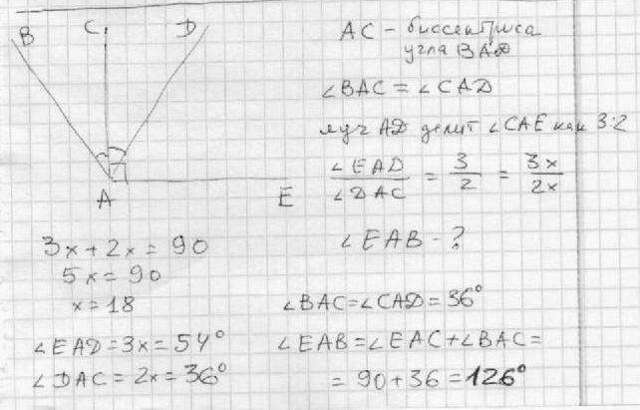 B C D
A E
AC - биссектриса
угла BAD
∠BAC = ∠CAD
луч AD делит ∠CAE как 3:2
∠EAD / ∠DAC = 3/2 = 3x/2x
∠EAB - ?
3x + 2x = 90
5x = 90
x = 18
∠EAD = 3x = 54°
∠DAC = 2x = 36°
∠BAC = ∠CAD = 36°
∠EAB = ∠EAC + ∠BAC =
= 90 + 36 = 126°